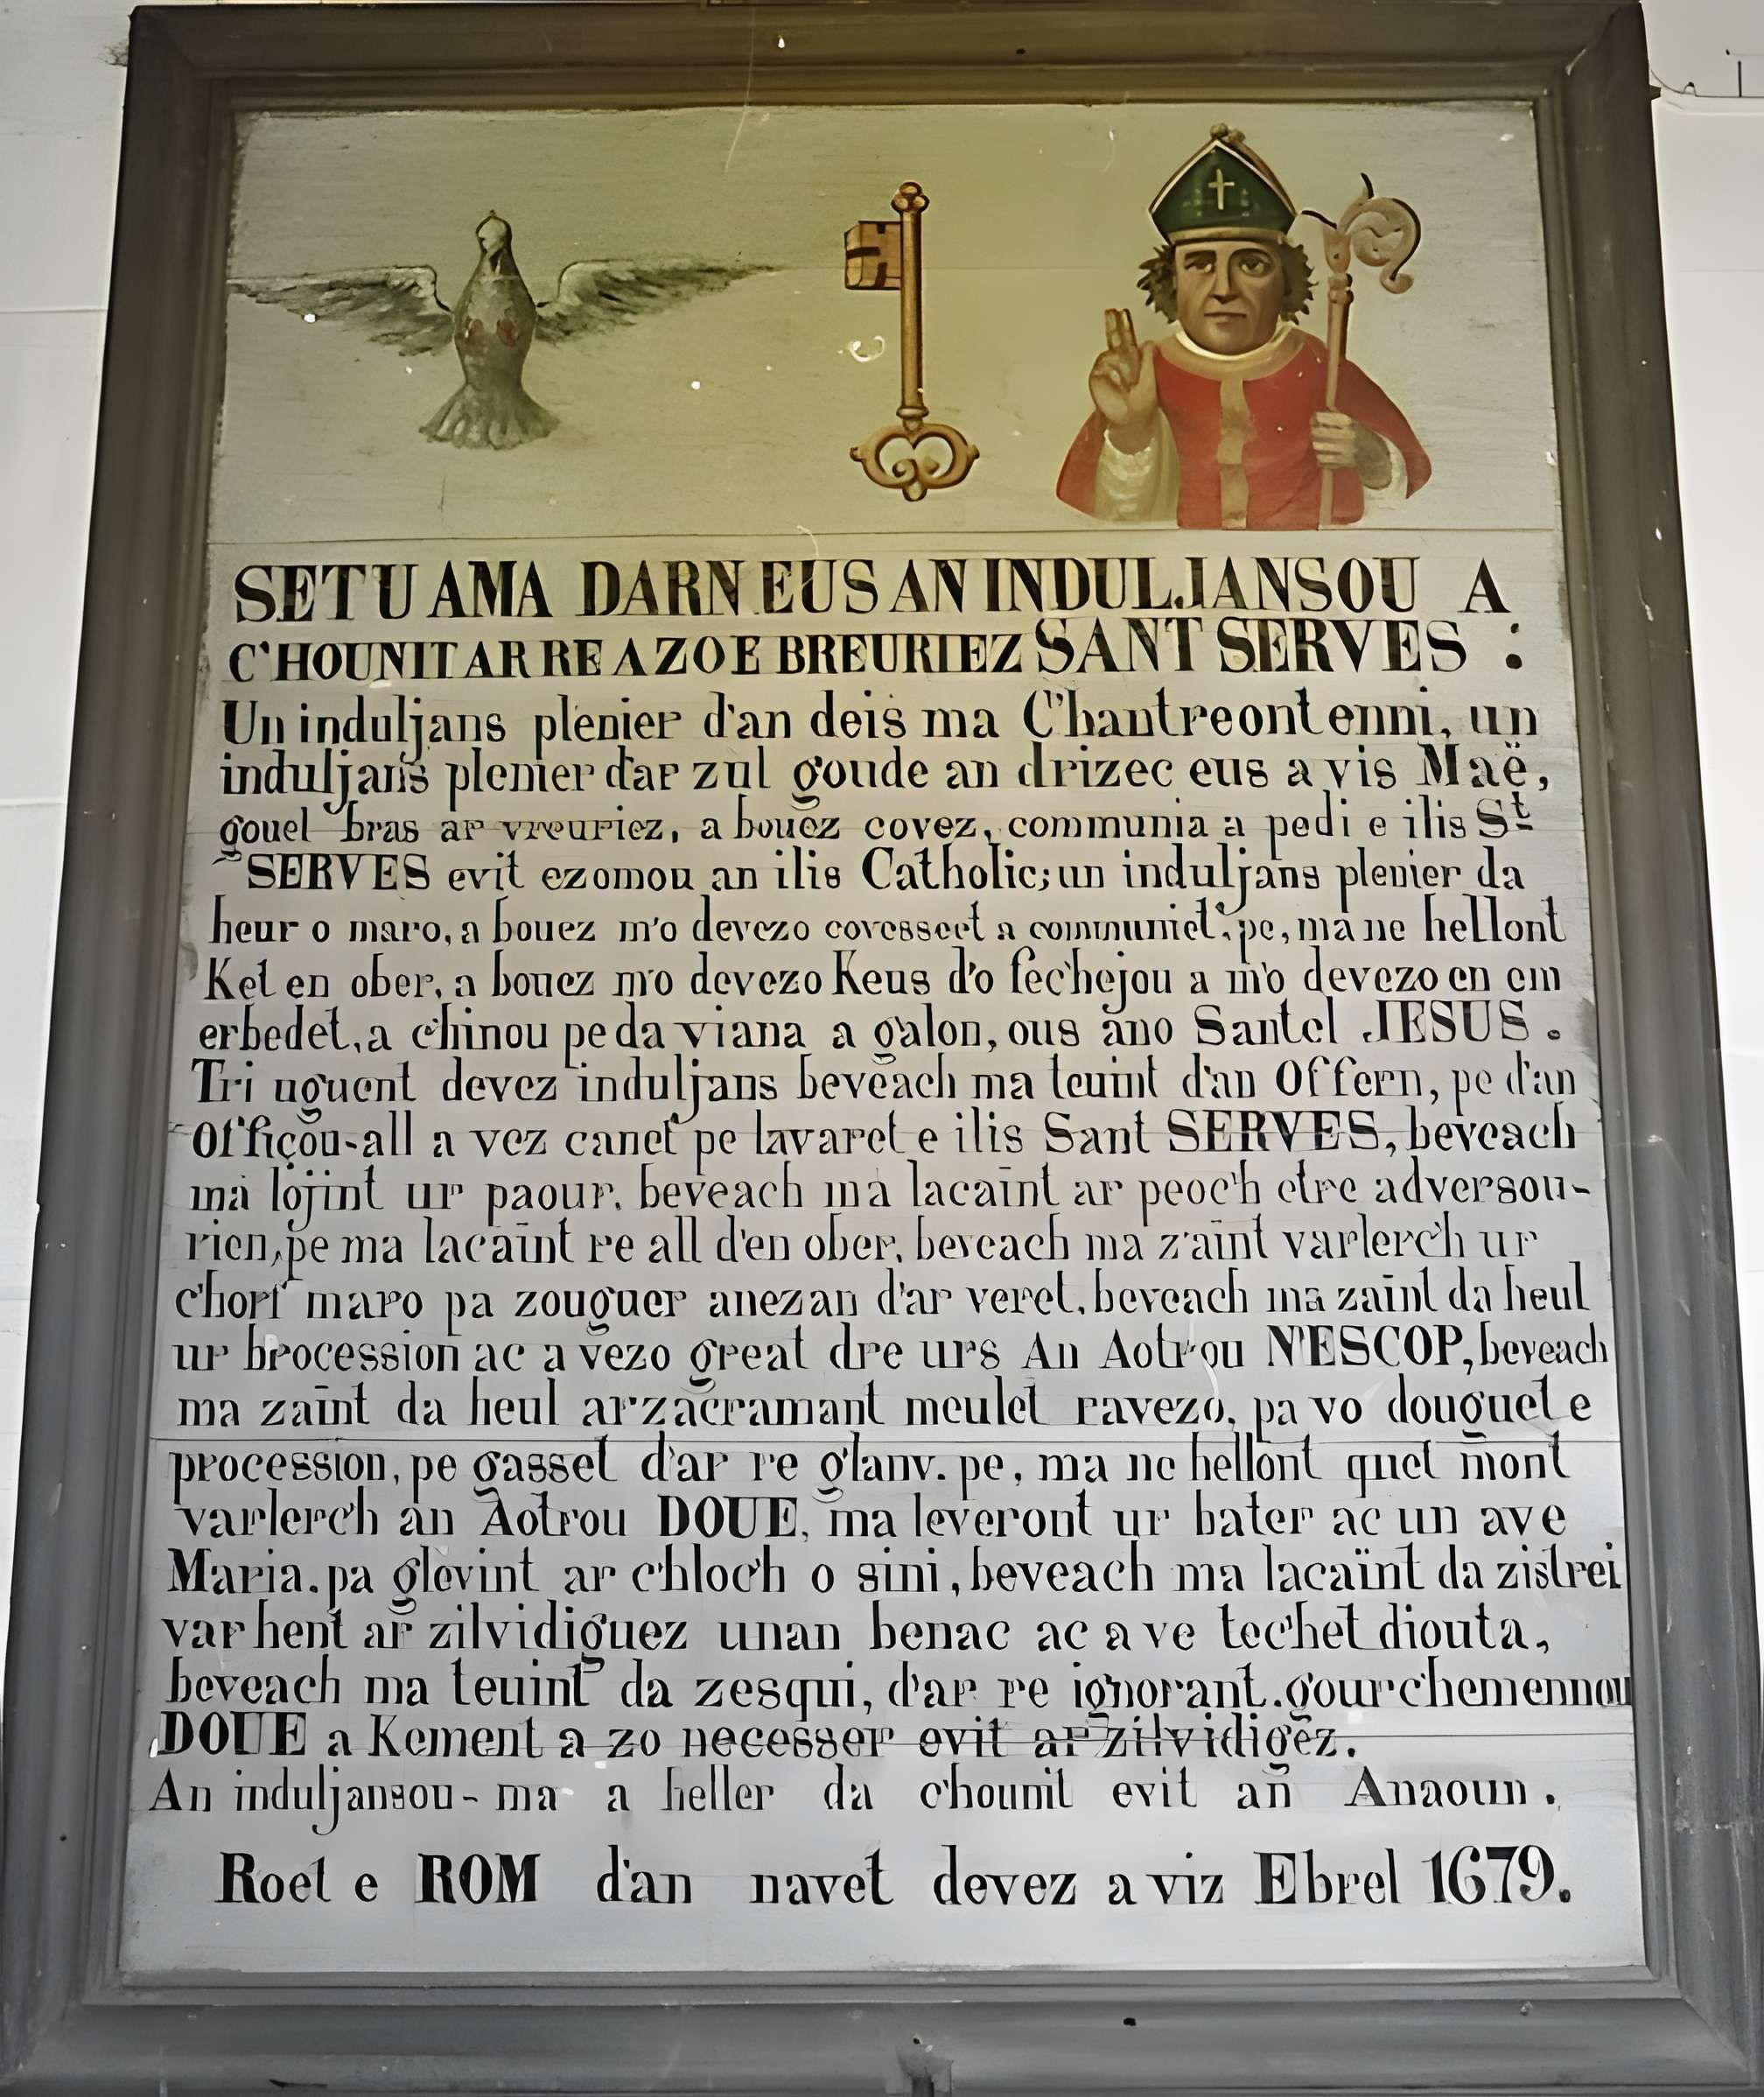 SETU AMA DARN EUS AN INDULJANSOU A
C'HOUNIT AR RE A ZO E BREURIEZ SANT SERVES :
Un induljans plenier d'an deis ma C'hantreont enni, un
induljans plenier d'ar zul goude an drizec eus a vis Maë,
gouel bras ar vreuriez, a bouez covez, communia a pedi e ilis St
SERVES evit ezomou an ilis Catholic; un induljans plenier da
heur o maro, a bouez m'o devezo covesseet a communiet, pe, ma ne hellont
Ket en ober, a bouez m'o devezo Keus d'o fec'hejou a m'o devezo en em
erbedet, a c'hinou pe da viana a galon, ous ano Santel JESUS.
Tri uguent devez induljans beveach ma teuint d'an Offern, pe d'an
Offiçou-all a vez canet pe lavaret e ilis Sant SERVES, beveach
ma lojint ur paour, beveach ma lacaint ar peoc'h etre adversou-
rien, pe ma lacaint re all d'en ober, beveach ma z'aint varlerc'h ur
c'horf maro pa zouguer anezan d'ar veret, beveach ma zaint da heul
ur brocession ac a vezo great dre urs An Aotrou N'ESCOP, beveach
ma zaint da heul ar zacramant meulet ravezo, pa vo douguet e
procession, pe gasset d'ar re g'lanv. pe, ma ne hellont quet mont
varlerc'h an Aotrou DOUE, ma leveront ur bater ac un ave
Maria. pa glevint ar c'hloc'h o sini, beveach ma lacaïnt da zistrei
var hent ar zilvidiguez unan benac ac a ve tec'het diouta,
beveach ma teuint da zesqui, d'ar re ignorant. gourc'hemennou
DOUE a Kement a zo necesser evit ar zilvidigez.
An induljansou-ma a heller da c'hounit evit an Anaoun.
Roet e ROM d'an navet devez a viz Ebrel 1679.